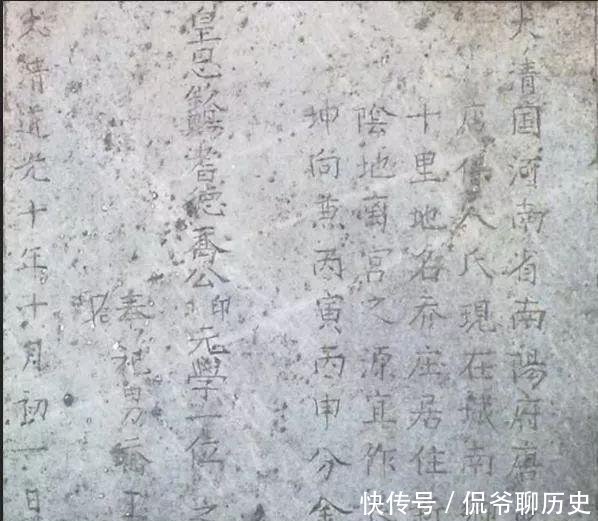 大清国河南省南陽府唐
店保人氏現在城南
十里地名乔庄居住
陰地酉宮之源宜作
坤向兼丙寅丙申分金
皇恩欽賜耆德喬公印元學一位之
奉祀男喬
大清道光十年十月初一日
快传号／侃爷聊历史